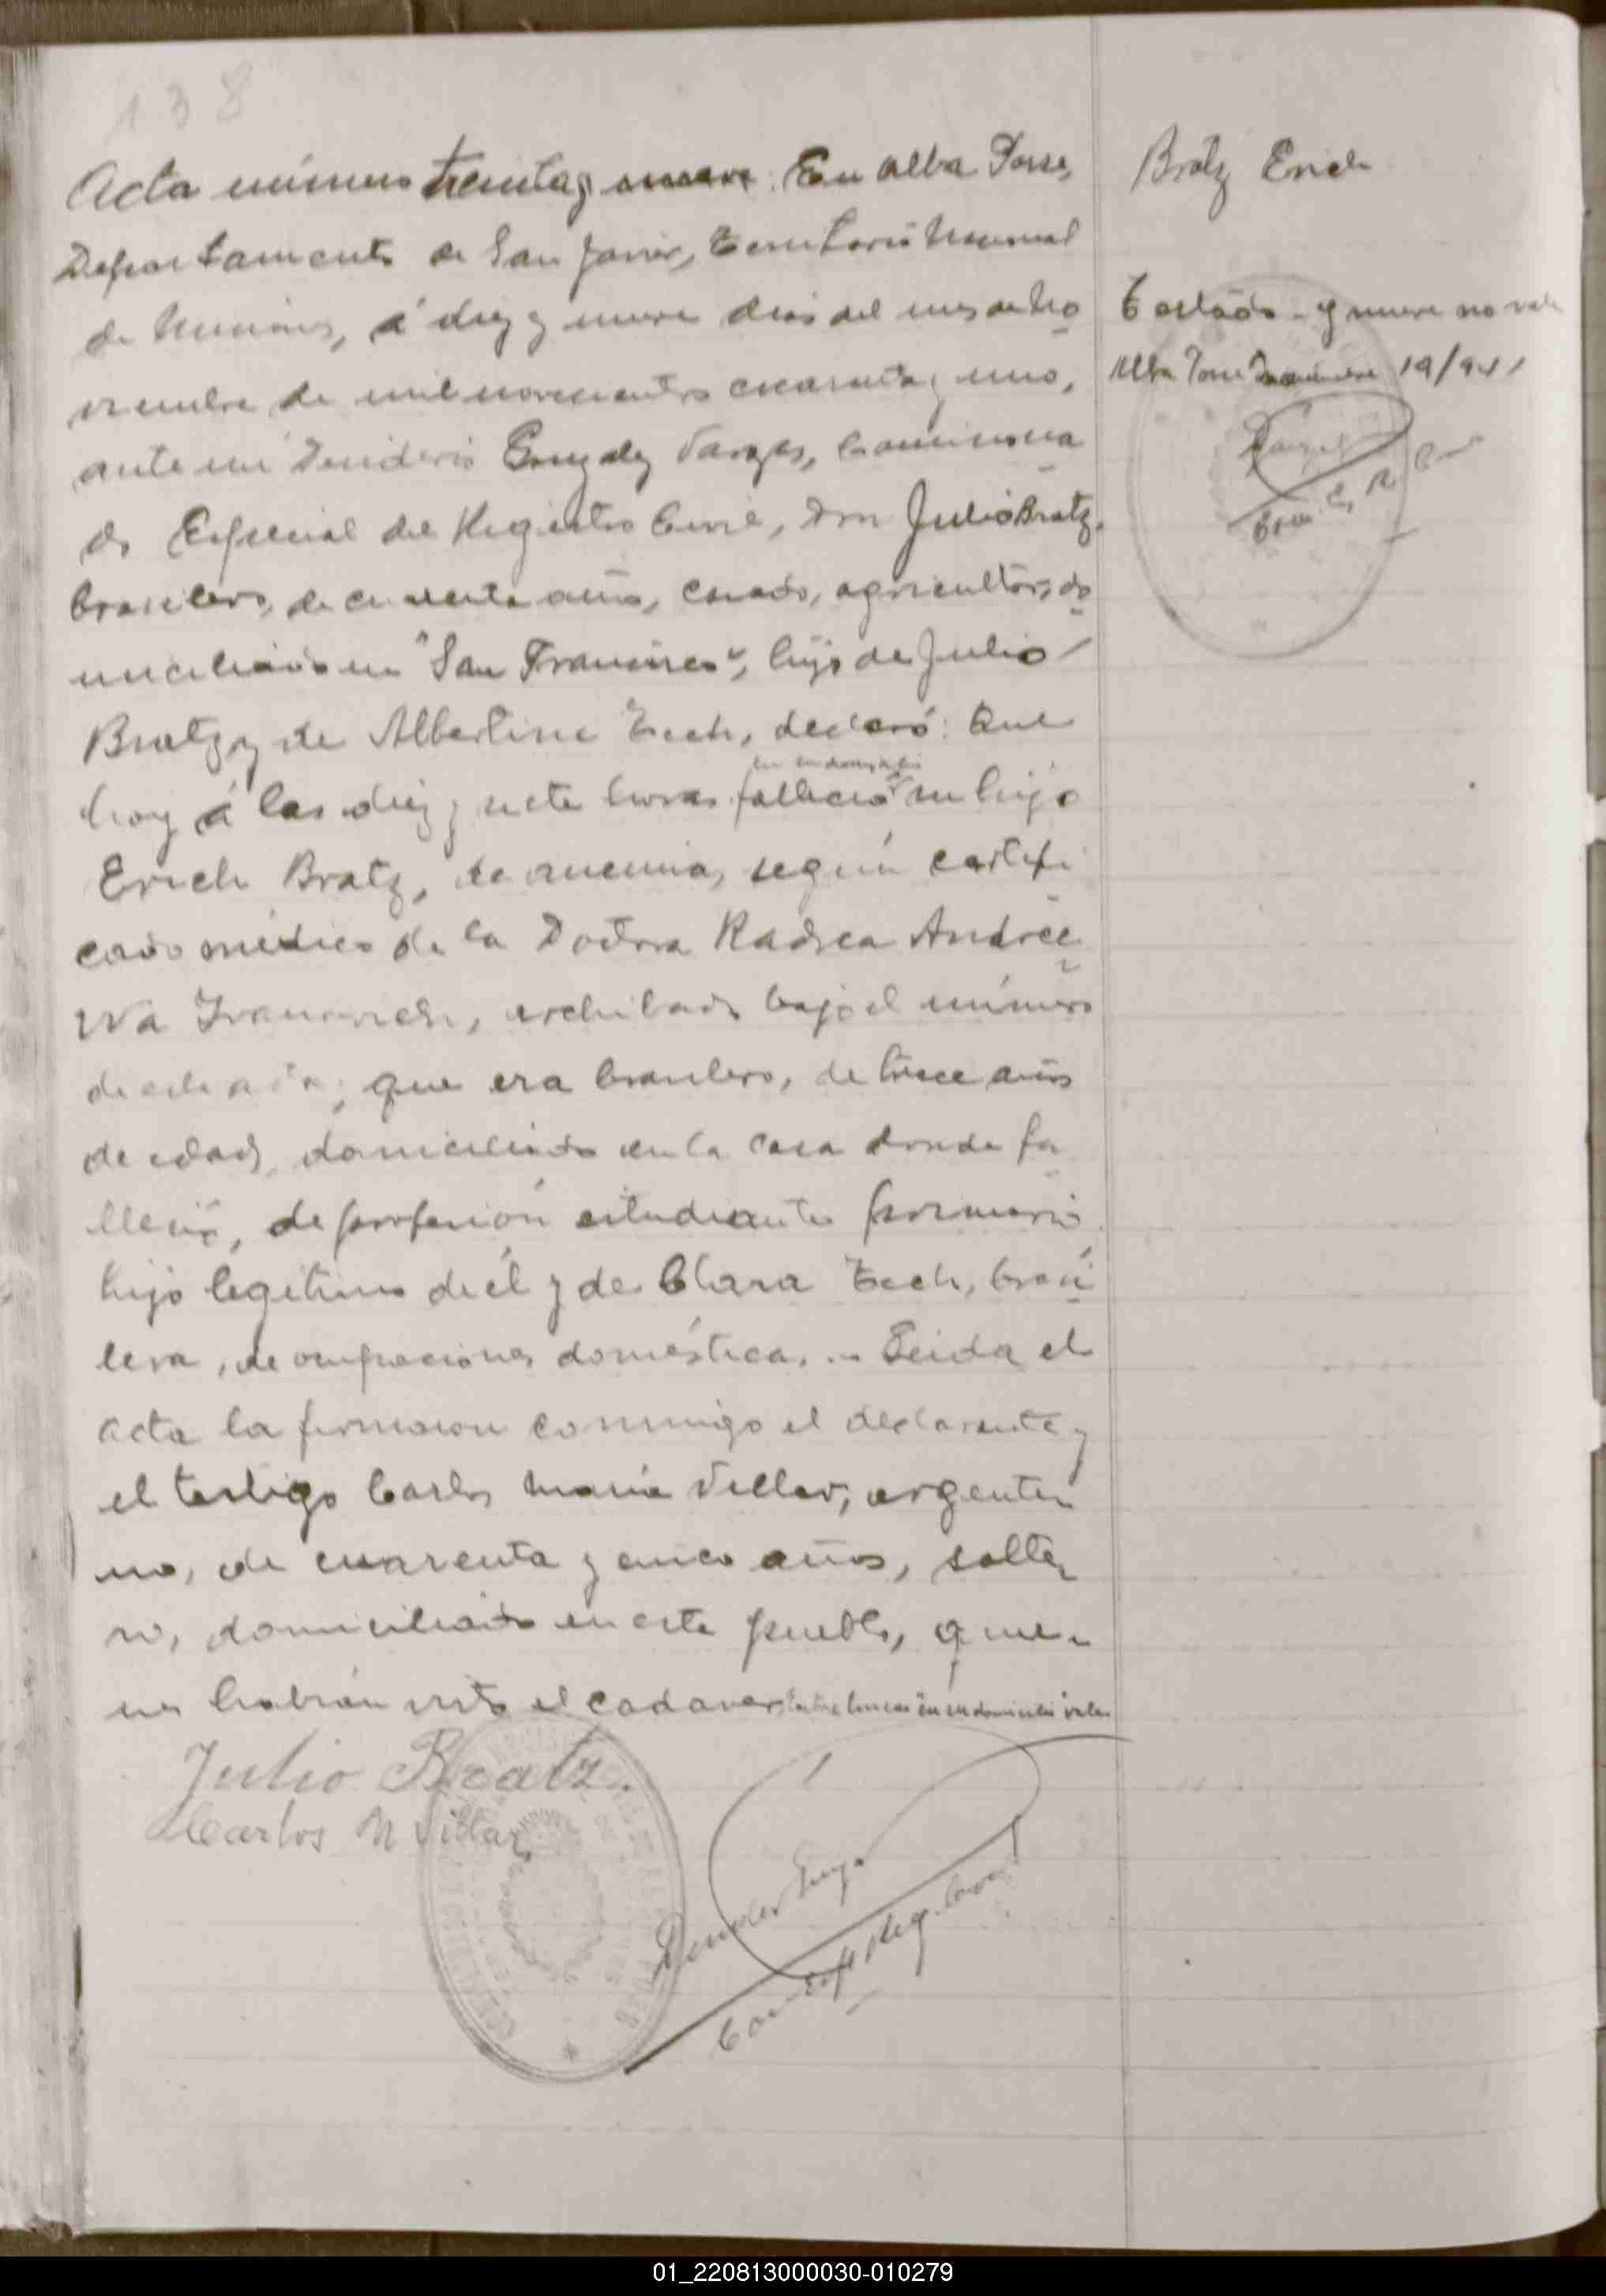 138
Acta número treinta y nueve. En Alba Posse,
Departamento de San Javier, Territorio Nacional
de Misiones, á diez y nueve dias del mes de No
viembre de mil novecientos cuarenta y uno,
ante mi Desiderio González Vargas, Comisiona
do Especial del Registro Civil, Don Julio Bratz,
brasilero, de cuarenta años, casado, agricultor, do
miciliado en "San Francisco", hijo de Julio
Bratz y de Albertine Tech, declaró: Que
en su domicilio
hoy á las diez y siete horas falleció su hijo
Erich Bratz, de anemia, según certifi
cado médico de la Doctora Radsca Andree
va Ivanovich, archivado bajo el número
de este acta; que era brasilero, de trece años
de edad, domiciliado en la casa donde fa
lleció, de profesión estudiante primario,
hijo legitimo de él y de Clara Tech, brasi
lera, de ocupaciones domésticas. - Leida el
acta la firmaron conmigo el declarante y
el testigo Carlos Maria Villar, argenti
no, de cuarenta y cinco años, solte
ro, domiciliado en este pueblo, quie
nes habian visto el cadaver. Entre lineas "en su domicilio" vale.
Julio Bratz.
Carlos M Villar
Com Esp Reg. Civil
Bratz Erich
Testado - y nueve no vale
Alba Posse Noviembre 19/941
01_220813000030-010279